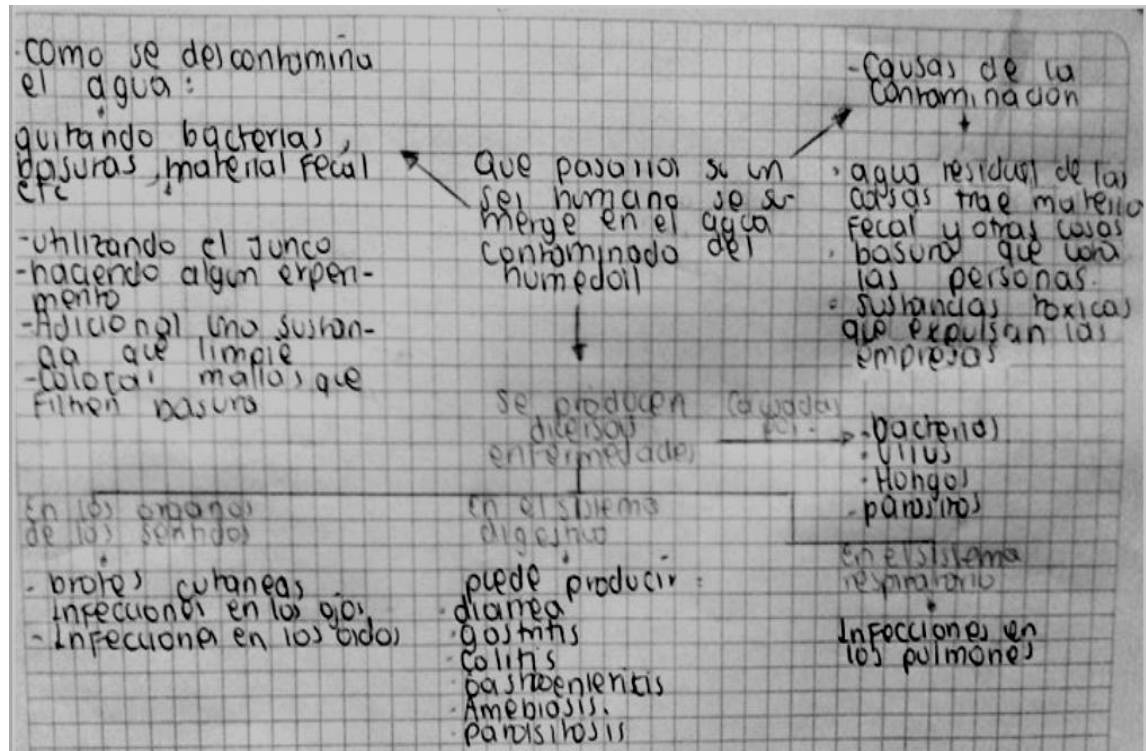 - Como se descontamina
el agua:
quitando bacterias,
basuras, material fecal
etc
- utilizando el Junco
- haciendo algun experi-
mento
- Adicional una sustan-
cia que limpie
- Colocar mallas que
filtren basura
que pasaria si un
ser humano se su-
merge en el agua
contaminado del
humedal
- Causas de la
Contaminación
• agua residual de las
casas trae materia
fecal y otras cosas
• basura que
las personas.
• sustancias toxicas
que expulsan las
empresas
se producen
diversas
enfermedades
causadas
por:
• bacterias
• virus
• Hongos
• parasitos
En los organos
de los sentidos
- brotes cutaneas
Infecciones en los ojos
- Infecciones en los oidos
en el sistema
digestivo
puede producir:
• diarrea
• gastritis
• colitis
• gastroenteritis
• Amebiosis.
• parasitosis
en el sistema
respiratorio
Infecciones en
los pulmones